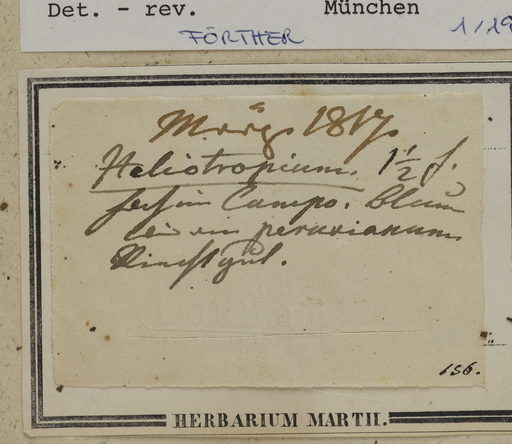 Det. - rev. München
FÖRTHER 1/19
März 1817.
Heliotropium. 1½ f.
im Campo. blau
peruvianum
156.
HERBARIUM MARTII.